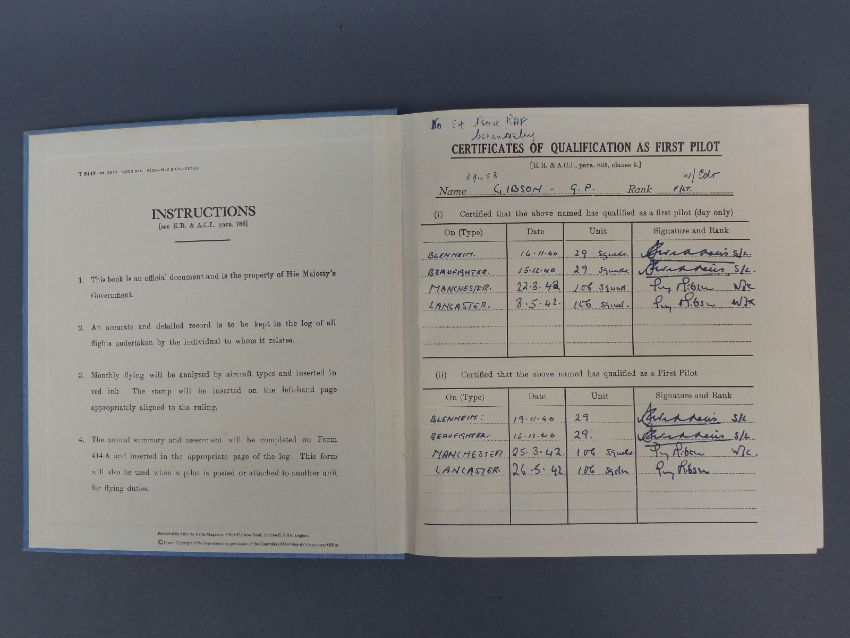 INSTRUCTIONS
[see K.R. & A.C.I. para. 786]
1. This book is an official document and is the property of His Majesty's
Government.
2. An accurate and detailed record is to be kept in the log of all
flights undertaken by the individual to whom it relates.
3. Monthly flying will be analysed by aircraft types and inserted in
red ink. The stamp will be inserted on the left-hand page
appropriately aligned to the ruling.
4. The annual summary and assessment will be completed on Form
414A and inserted in the appropriate page of the log. This form
will also be used when a pilot is posted or attached to another unit
for flying duties.
RAF
CERTIFICATES OF QUALIFICATION AS FIRST PILOT
[K.R. & A.C.I., para. 805, clause 5.]
W/Cdr
Name GIBSON - G.P. Rank F/LT.
(i) Certified that the above named has qualified as a first pilot (day only)
On (Type) Date Unit Signature and Rank
BLENHEIM. 14.11.40 29 S/L.
BEAUFIGHTER. 15.12.40 29 S/L.
MANCHESTER. 22.3.42 106 Squad Guy Gibson W/C
LANCASTER. 8.5.42. 106 Squad. Guy Gibson W/C
(ii) Certified that the above named has qualified as a First Pilot
On (Type) Date Unit Signature and Rank
BLENHEIM. 19.11.40 29 S/L
BEAUFIGHTER. 15.12.40 29. S/L.
MANCHESTER 25.3.42. 106 Guy Gibson W/C.
LANCASTER. 26.5.42 106 Guy Gibson